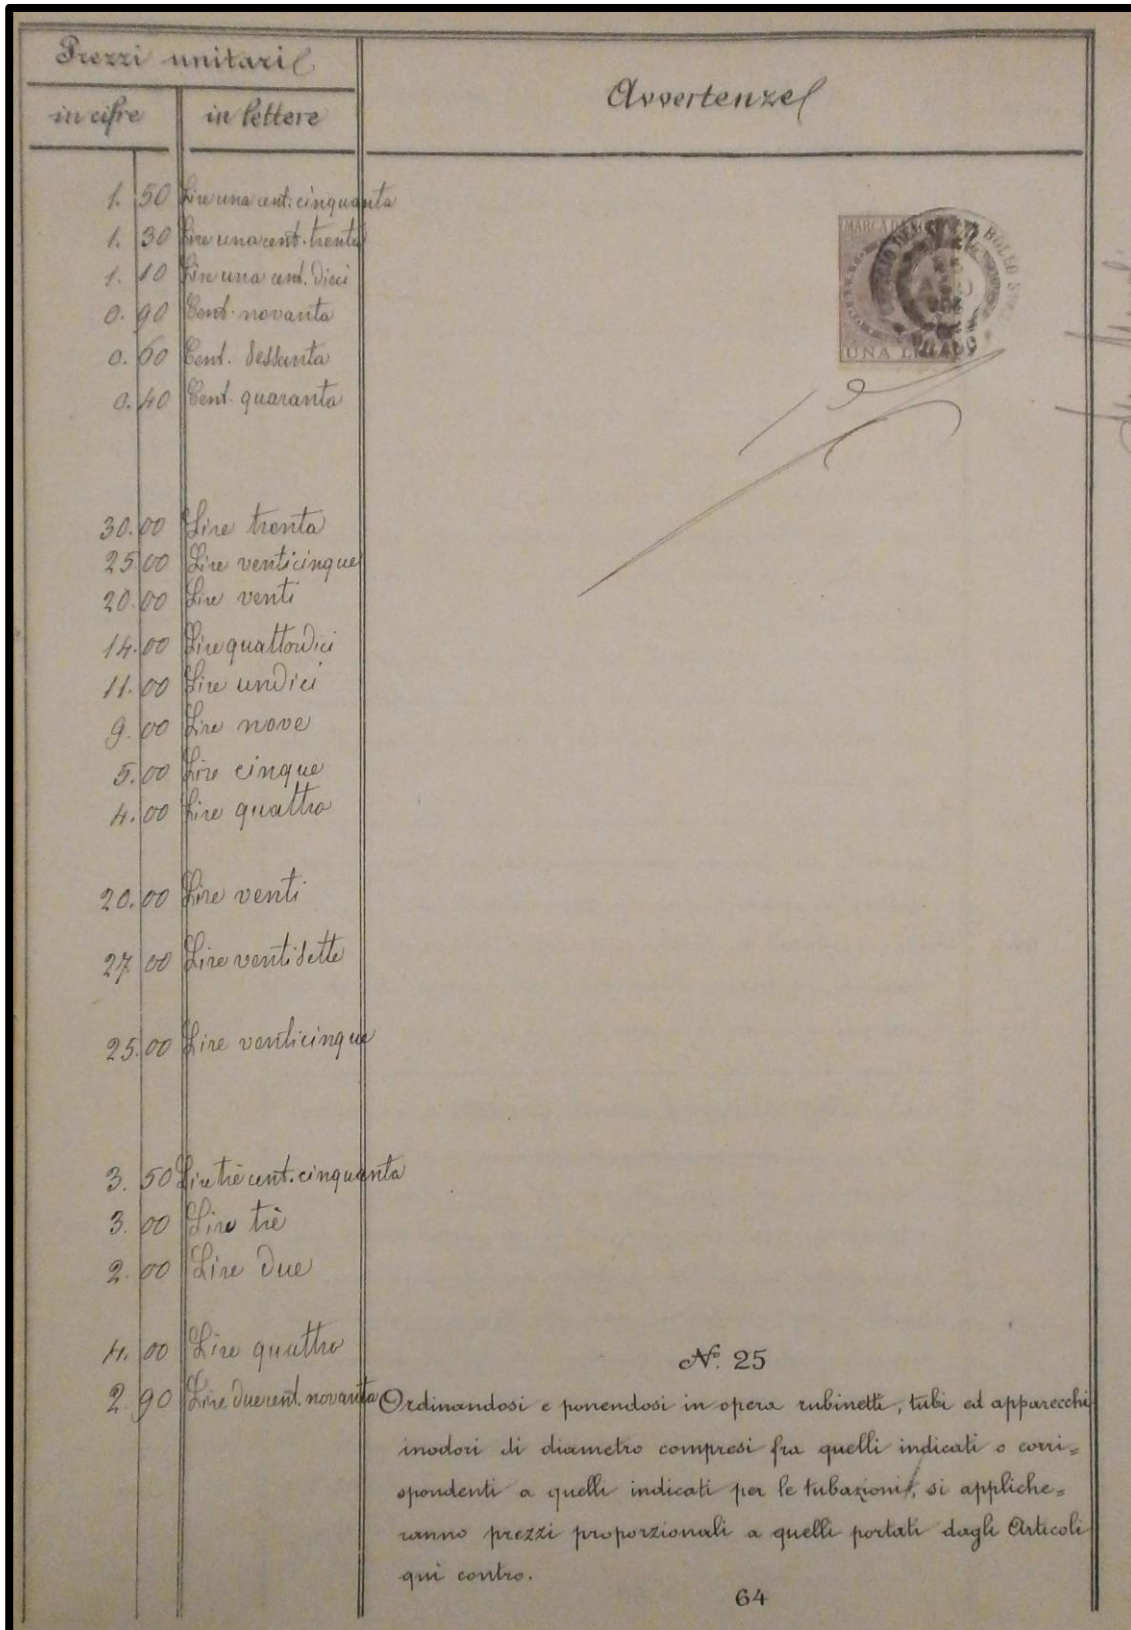 Prezzi unitari
in cifre in lettere
Avvertenze
1. 50 Lire una cent. cinquanta
1. 30 Lire una cent. trenta
1. 10 Lire una cent. dieci
0. 90 Cent. novanta
0. 60 Cent. sessanta
0. 40 Cent. quaranta
MARCA DA
BOLLO
UNA LI
30. 00 Lire trenta
25 00 Lire venticinque
20. 00 Lire venti
14. 00 Lire quattordici
11. 00 Lire undici
9. 00 Lire nove
5. 00 Lire cinque
4. 00 Lire quattro
20. 00 Lire venti
27 00 Lire ventisette
25. 00 Lire venticinque
3. 50 Lire trè cent. cinquanta
3. 00 Lire trè
2. 00 Lire due
4. 00 Lire quattro
2. 90 Lire due cent. novanta
N.° 25
Ordinandosi e ponendosi in opera rubinetti, tubi ed apparecchi
inodori di diametro compresi fra quelli indicati o corri=
spondenti a quelli indicati per le tubazioni, si appliche=
ranno prezzi proporzionali a quelli portati dagli Articoli
qui contro.
64